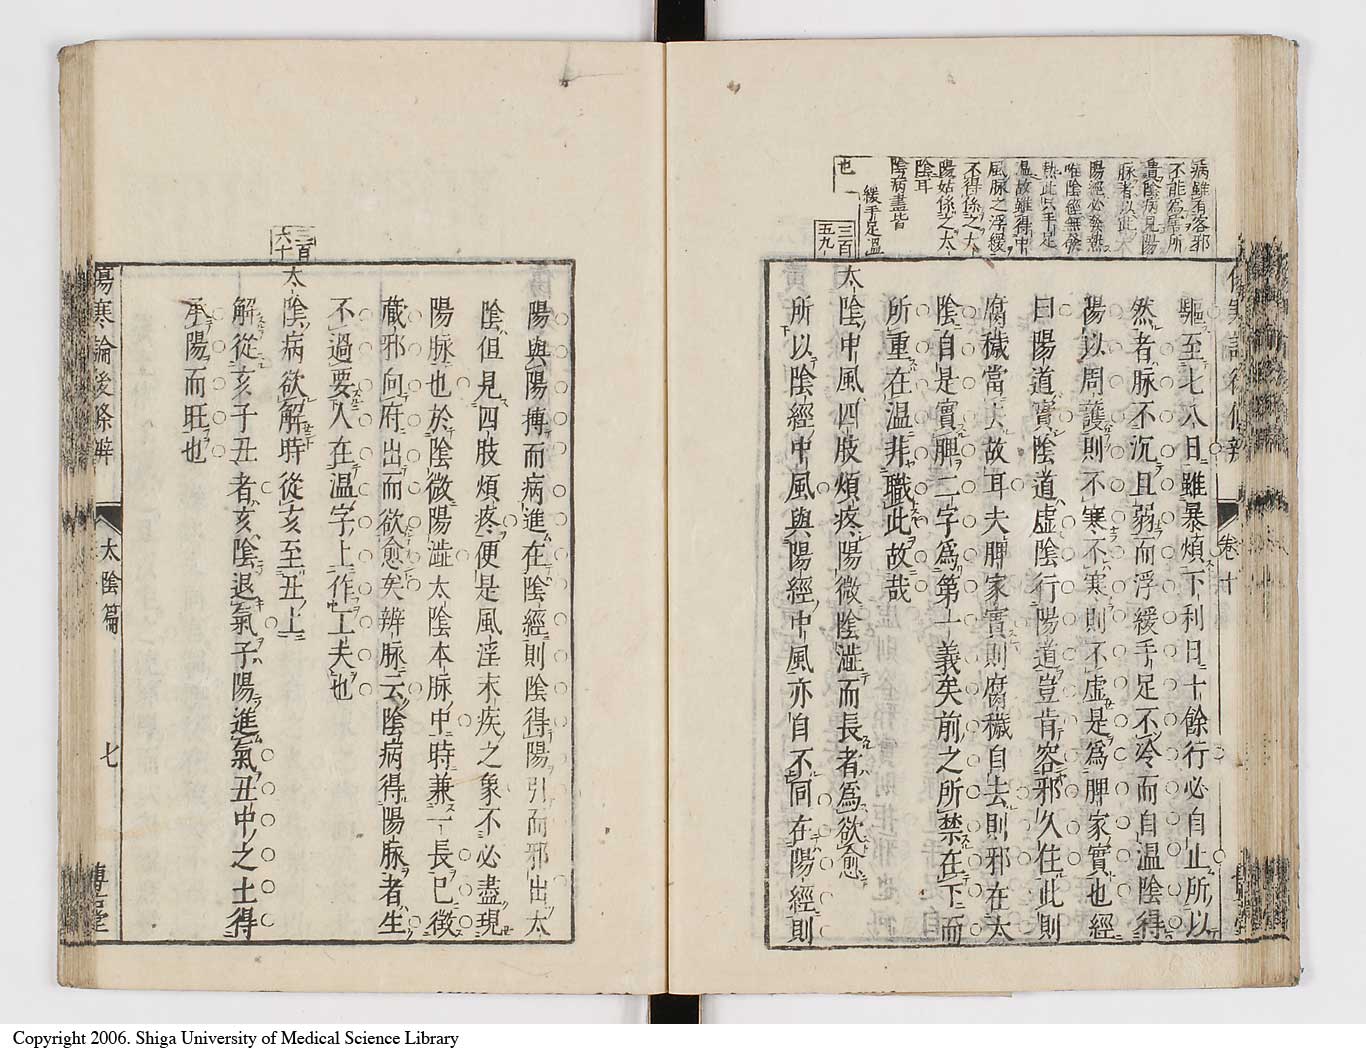 病雖有客邪
不能爲害所
貴陰病見陽
脉者以此太
陽經必發熱
唯陰經無發
熱此只手足
溫故雖得中
風脉之浮緩
不得係之太
陽姑係之太
陰耳
陰病盡皆
緩手足溫
也
驅至七八日雖暴煩下利日十餘行必自止所以
然者脉不沉且弱而浮緩手足不冷而自温陰得
陽以周護則不寒不寒則不虛是爲脾家實也經
曰陽道實陰道虛陰行陽道豈肯容邪久住此則
腐穢當去故耳夫脾家實則腐穢自去則邪在太
陰自是實脾二字爲第一義矣前之所禁在下而
所重在温非職此故哉
三百
五九
太陰中風四肢煩疼陽微陰濇而長者爲欲愈
所以陰經中風與陽經中風亦自不同在陽經則
卷十
陽與陽搏而病進在陰經則陰得陽引而邪出太
陰但見四肢煩疼便是風淫末疾之象不必盡現
陽脉也於陰微陽濇太陰本脉中時兼一長已徵
藏邪向府出而欲愈矣辨脉云陰病得陽脉者生
不過要人在温字上作工夫也
三百
六十
太陰病欲解時從亥至丑上
解從亥子丑者亥陰退氣子陽進氣丑中之土得
承陽而旺也
傷寒論後條辨
太陰篇
七
博古堂
Copyright 2006. Shiga University of Medical Science Library